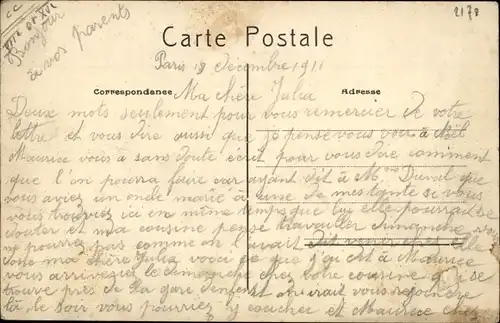 2178
Bonjour
à vos parents
Carte Postale
Paris 18 décembre 1911
Correspondance
Adresse
Ma chère Julia
Deux mots seulement pour vous remercier de votre
lettre et vous dire aussi que je pense vous voir à Noël
Maurice vous a sans doute écrit pour vous dire comment
que l'on pourra faire car ayant dit à Mme Duval que
vous aviez un oncle marié à une de mes tantes si vous
vous trouviez ici en même temps que lui elle pourrait se
douter et ma cousine pense travailler dimanche
pourrez pas comme on l'avait dit venez chez elle
donc ma chère Julia voici ce que j'ai dit à Maurice
vous arriveriez le dimanche chez notre cousine qui se
trouve près de la gare d'enfert on irait vous rejoindre
là, le soir vous pourriez y coucher et Maurice chez